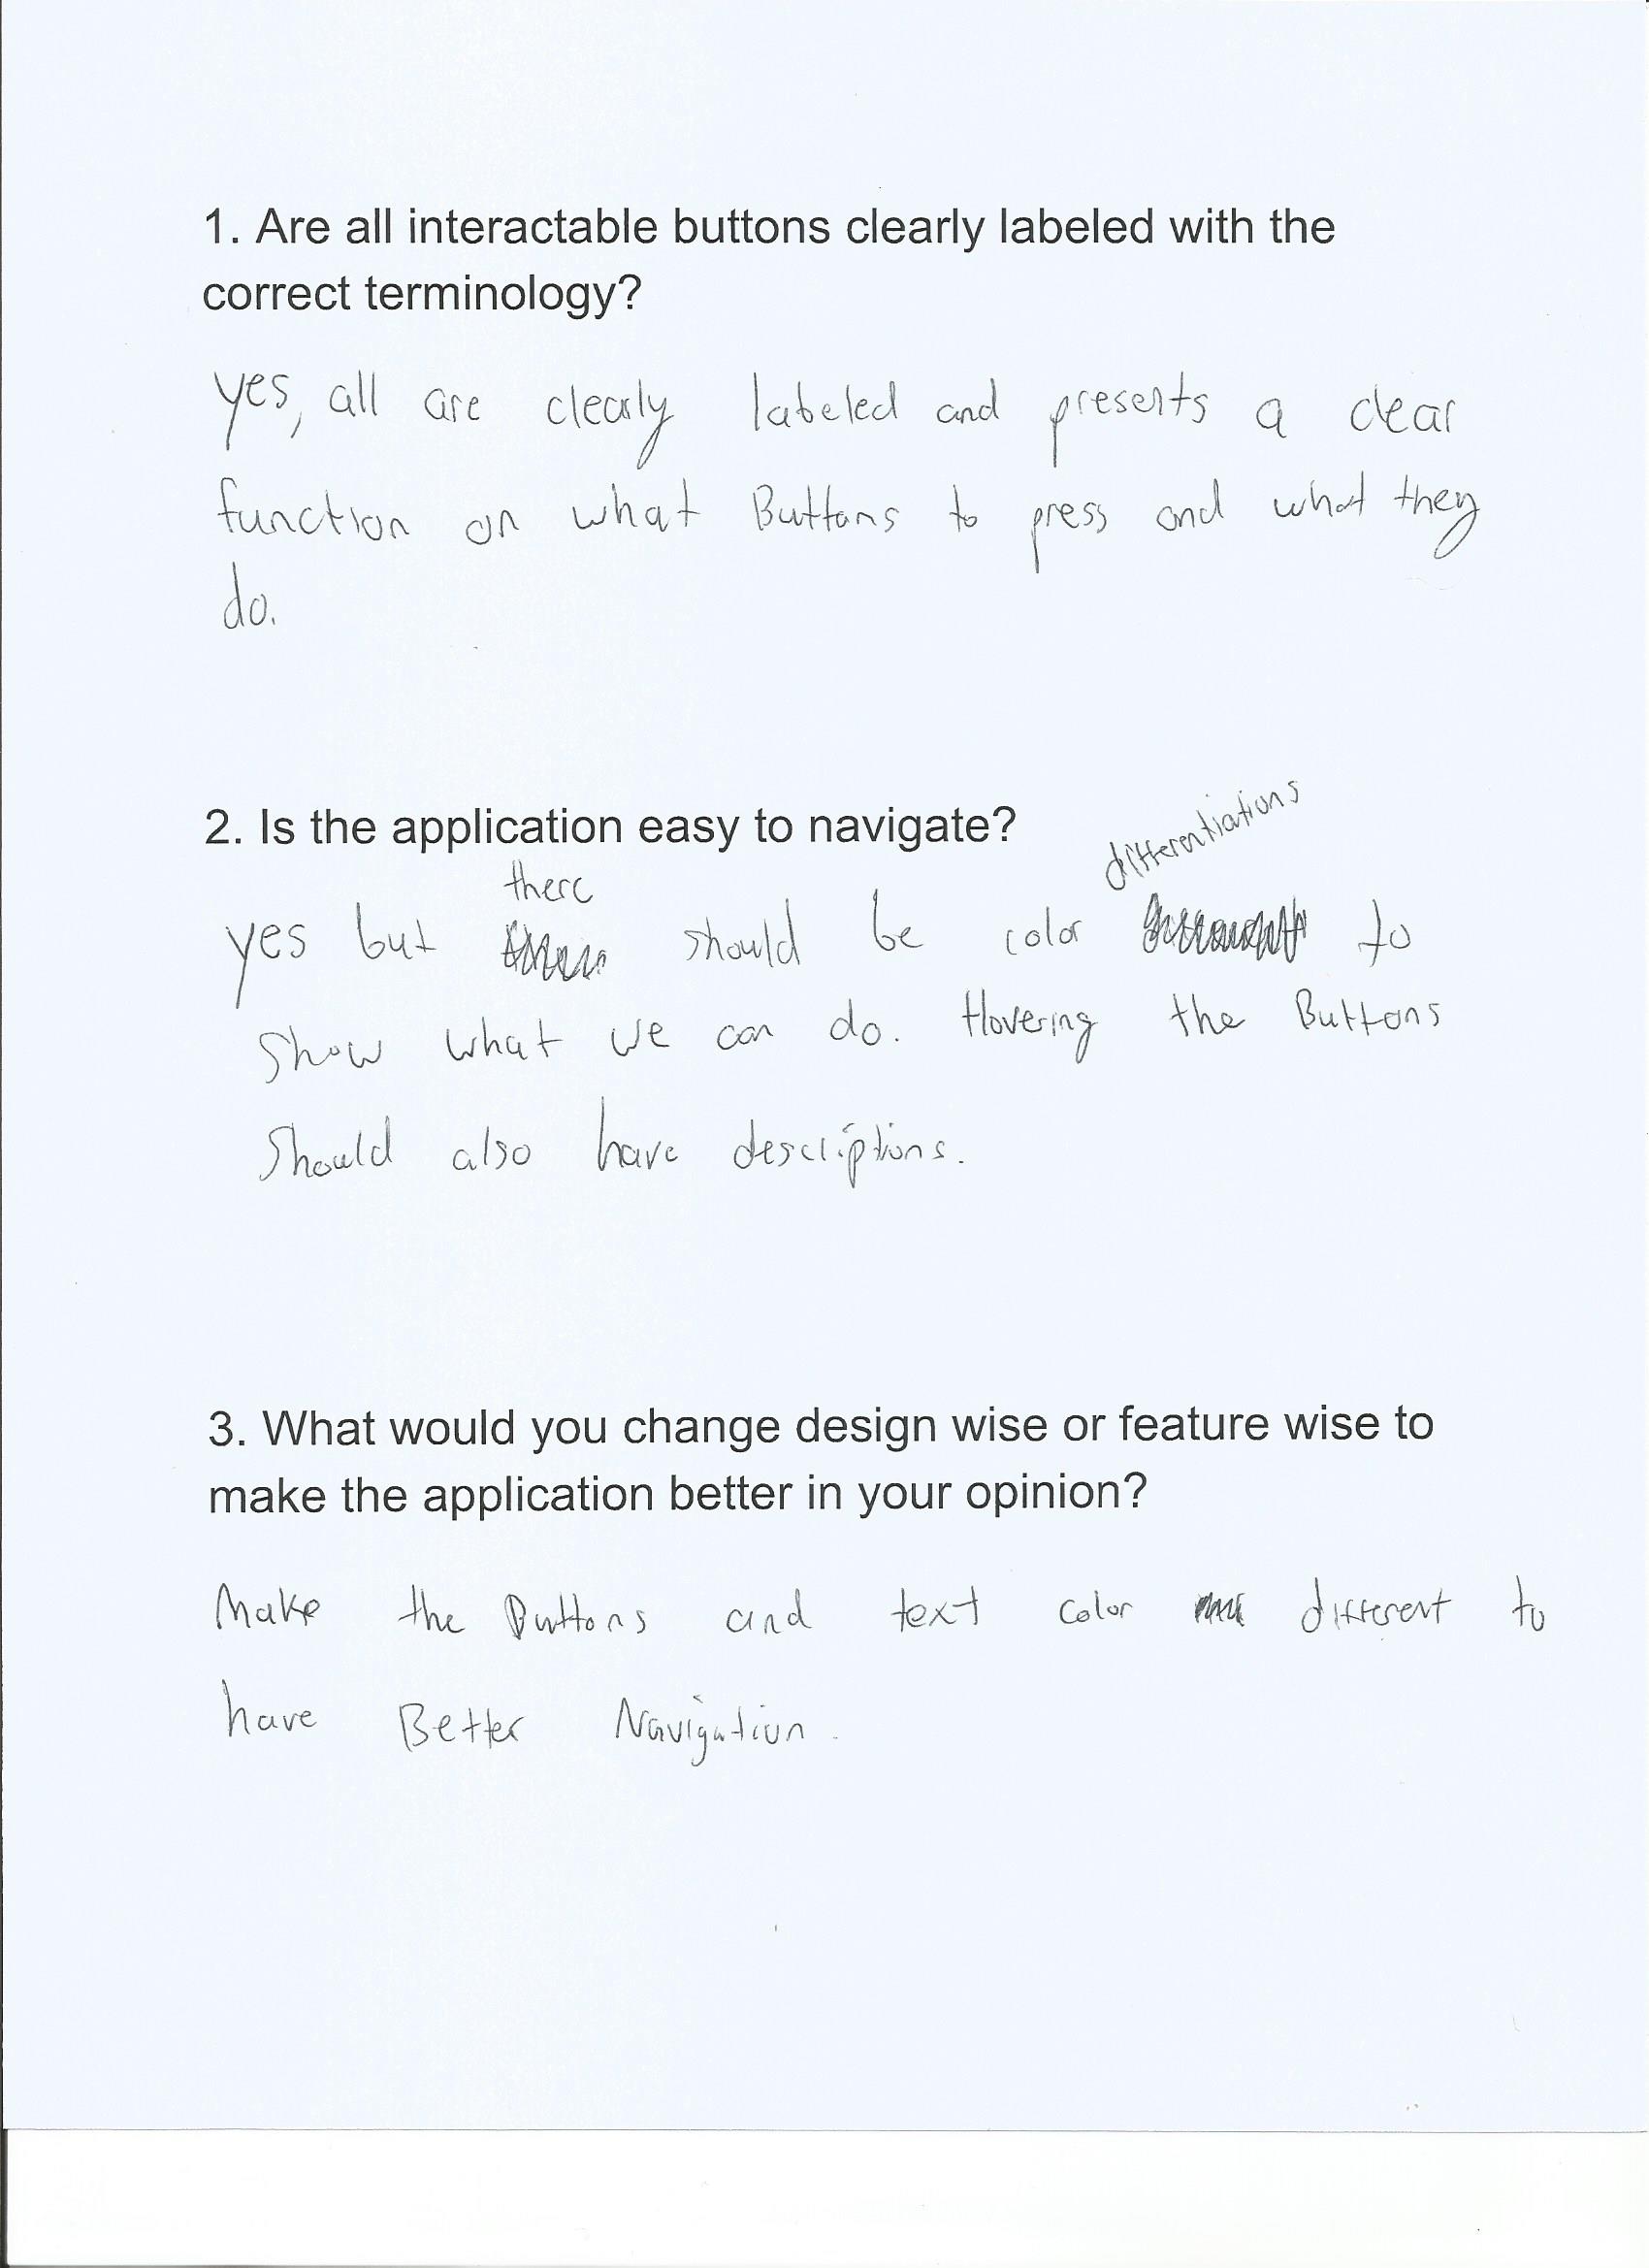 1. Are all interactable buttons clearly labeled with the
correct terminology?
yes, all are clearly labeled and presents a clear
function on what Buttons to press and what they
do.
2. Is the application easy to navigate?
yes but there should be color differentiations to
show what we can do. Hovering the Buttons
should also have descriptions.
3. What would you change design wise or feature wise to
make the application better in your opinion?
Make the Buttons and text color different to
have Better Navigation.